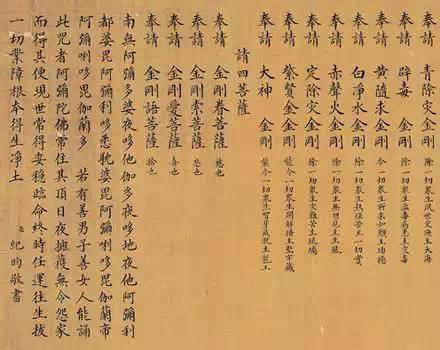 奉請 青除災 金剛 除一切眾生夙世災殃主大海
奉請 辟毒 金剛 除一切眾生瘟毒病患主災毒
奉請 黃隨求 金剛 令一切眾生所求如願主功德
奉請 白淨水 金剛 除一切眾生執惱苦主一切寶
奉請 赤聲火 金剛 除一切眾生無明見主生風
奉請 定除災 金剛 除一切眾生災難苦主琉璃
奉請 紫賢金 金剛 能令一切眾生開解悟主堅牢藏
奉請 大神 金剛 能令一切眾生智芽成就主龍王
請四菩薩
奉請 金剛眷菩薩 慈也
奉請 金剛索菩薩 悲也
奉請 金剛愛菩薩 喜也
奉請 金剛語菩薩 捨也
南無阿彌多婆夜哆他伽多夜哆地夜他阿彌利
都婆毘阿彌唎哆悉眈婆毘阿彌唎哆毘伽蘭帝
阿彌唎哆毘伽蘭多 若有善男子善女人能誦
此咒者阿彌陀佛常住其頂日夜擁護無令怨家
而得其便現世常得安穩臨命終時任運往生拔
一切業障根本得生淨土 臣 紀昀敬書